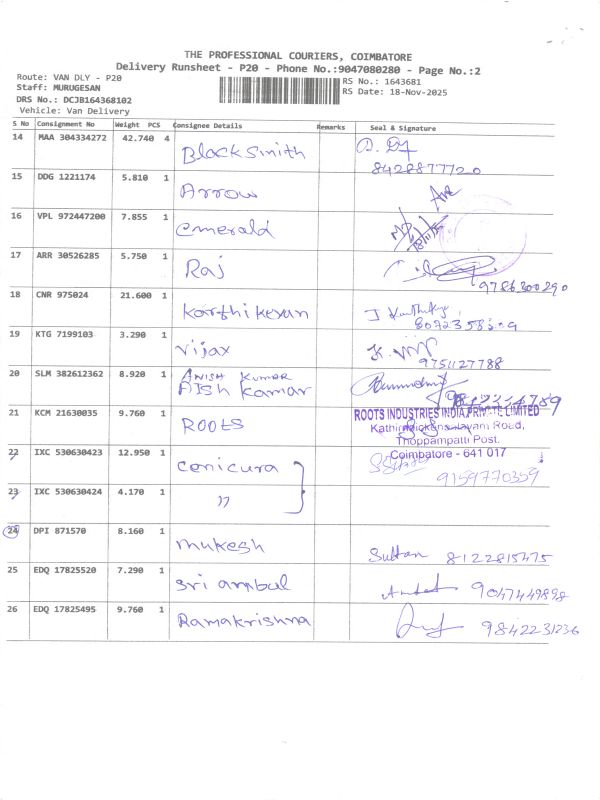 THE PROFESSIONAL COURIERS, COIMBATORE
Delivery Runsheet - P20 - Phone No.:9047080280 - Page No.:2
Route: VAN DLY - P20
Staff: MURUGESAN
DRS No.: DCJB164368102
Vehicle: Van Delivery
RS No.: 1643681
RS Date: 18-Nov-2025
S No Consignment No Weight PCS Consignee Details Remarks Seal & Signature
14 MAA 304334272 42.740 4 Blacksmith
8428877720
15 DDG 1221174 5.810 1 Arrow
16 VPL 972447200 7.855 1 emerald
17 ARR 30526285 5.750 1 Raj
9786300290
18 CNR 975024 21.600 1 Karthikeyan J
19 KTG 7199103 3.290 1 Vijax
9751127788
20 SLM 382612362 8.920 1 ANISH KUMAR
AISh Kamar
21 KCM 21630035 9.760 1 ROOTS
ROOTS INDUSTRIES INDIA PRIVATE LIMITED
Road,
Thoppampatti Post.
Coimbatore - 641 017
22 IXC 530630423 12.950 1 Cenicura
9159770359
23 IXC 530630424 4.170 1 "
24 DPI 871570 8.160 1 mukesh Sultan 8122815475
25 EDQ 17825520 7.290 1 Sri ambul 9047449898
26 EDQ 17825495 9.760 1 Ramakrishna 9842231236